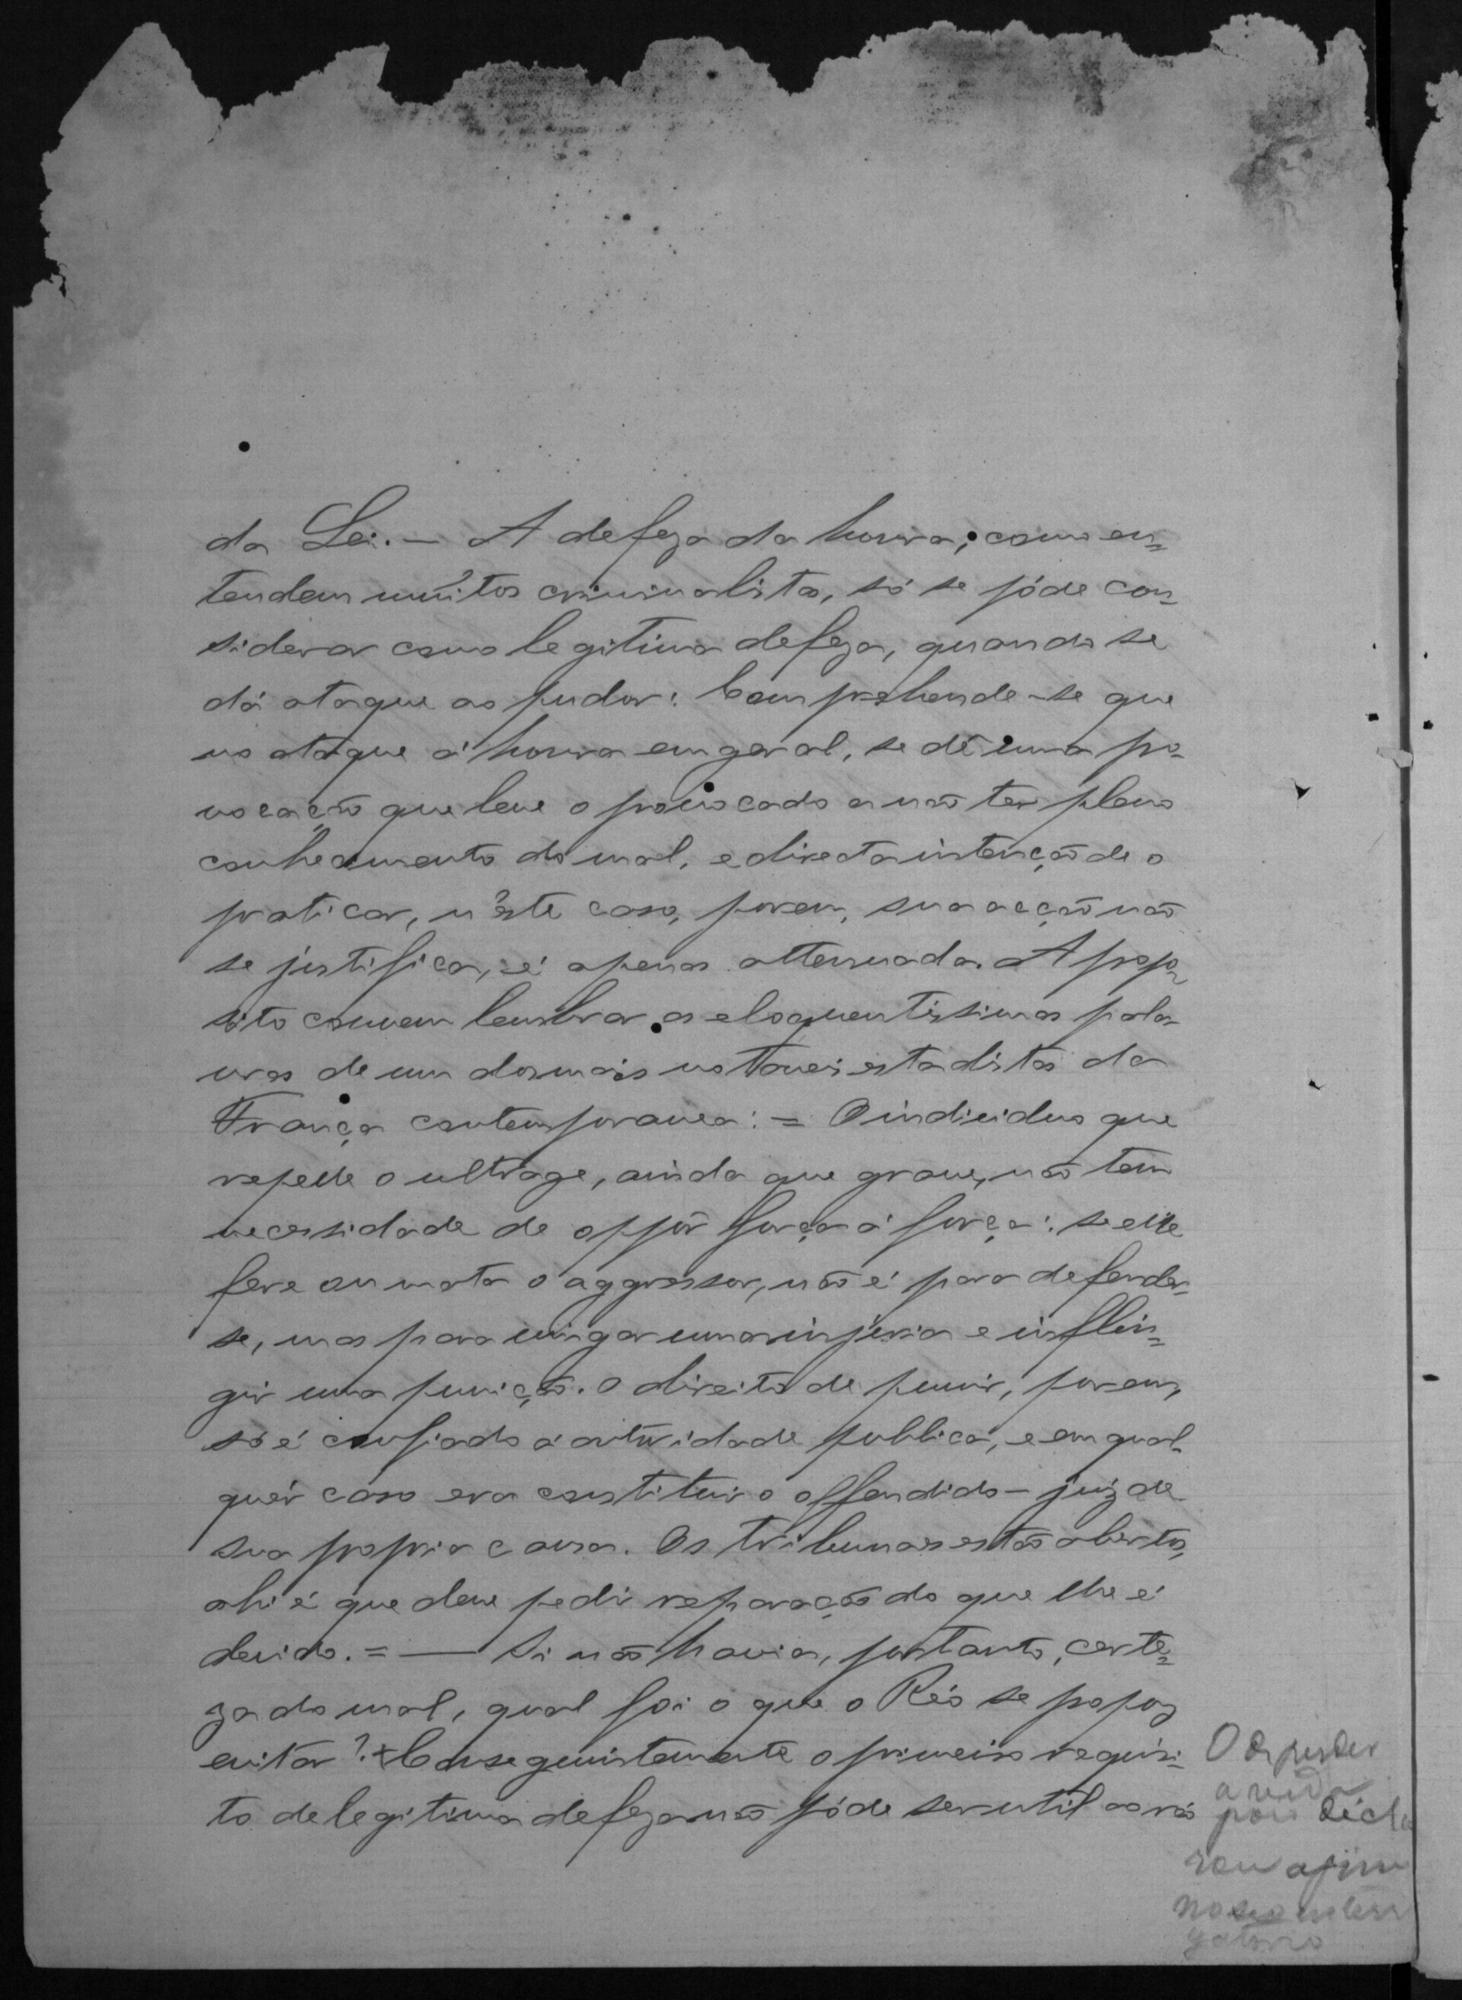 da Lei. — A defeza da honra; como en=
tendem muitos criminalistas, só se póde con=
siderar como legitima defeza, quando se
dá ataque ao pudor: Comprehende-se que
no ataque á honra em geral, se dê uma pro-
vocação que leve o provocado a não ter pleno
conhecimento do mal, e directa intenção de o
praticar, n'este caso, porem, sua acção não
se justifica, é apenas attenuada. A propo-
sito convem lembrar as eloquentissimas pala-
vras de um dos mais notaveis estadistas da
França contemporanea: = O individuo que
repelle o ultrage, ainda que grave, não tem
necessidade de oppôr força á força: se elle
fere ou mata o aggressor, não é para defender-
se, mas para vingar uma injuria e inflin-
gir uma punição. O direito de punir, porem,
só é confiado á autoridade publica, e em qual-
quér caso era constituir o offendido — juiz de
sua propria causa. Os tribunaes estão abertos,
ahi é que deve pedir reparação do que lhe é
devido. = — Si não havia, portanto, certe=
za do mal, qual foi o que o Réo se propoz
evitar? + Conseguintemente o primeiro requisi-
to de legitima defeza não póde ser util ao réo
O de perder
a vida
pois decla
rou assim
no seo interro
gatorio